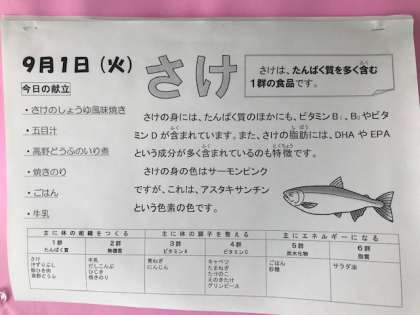 9月1日（火）
さけ
さけは、たんぱく質を多く含む
1群の食品です。
今日の献立
・さけのしょうゆ風味焼き
・五目汁
・高野どうふのいり煮
・焼きのり
・ごはん
・牛乳
さけの身には、たんぱく質のほかにも、ビタミンB₁、B₂やビタ
ミンDが含まれています。また、さけの脂肪には、DHAやEPA
という成分が多く含まれているのも特徴です。
さけの身の色はサーモンピンク
ですが、これは、アスタキサンチン
という色素の色です。
主に体の組織をつくる 主に体の調子を整える 主にエネルギーになる
1群 2群 3群 4群 5群 6群
たんぱく質 無機質 ビタミンA ビタミンC 炭水化物 脂質
さけ 牛乳 葉ねぎ キャベツ ごはん サラダ油
けずりぶし だしこんぶ にんじん たまねぎ 砂糖
豚ひき肉 ひじき たけのこ
高野どうふ 焼きのり えのきたけ
グリンピース